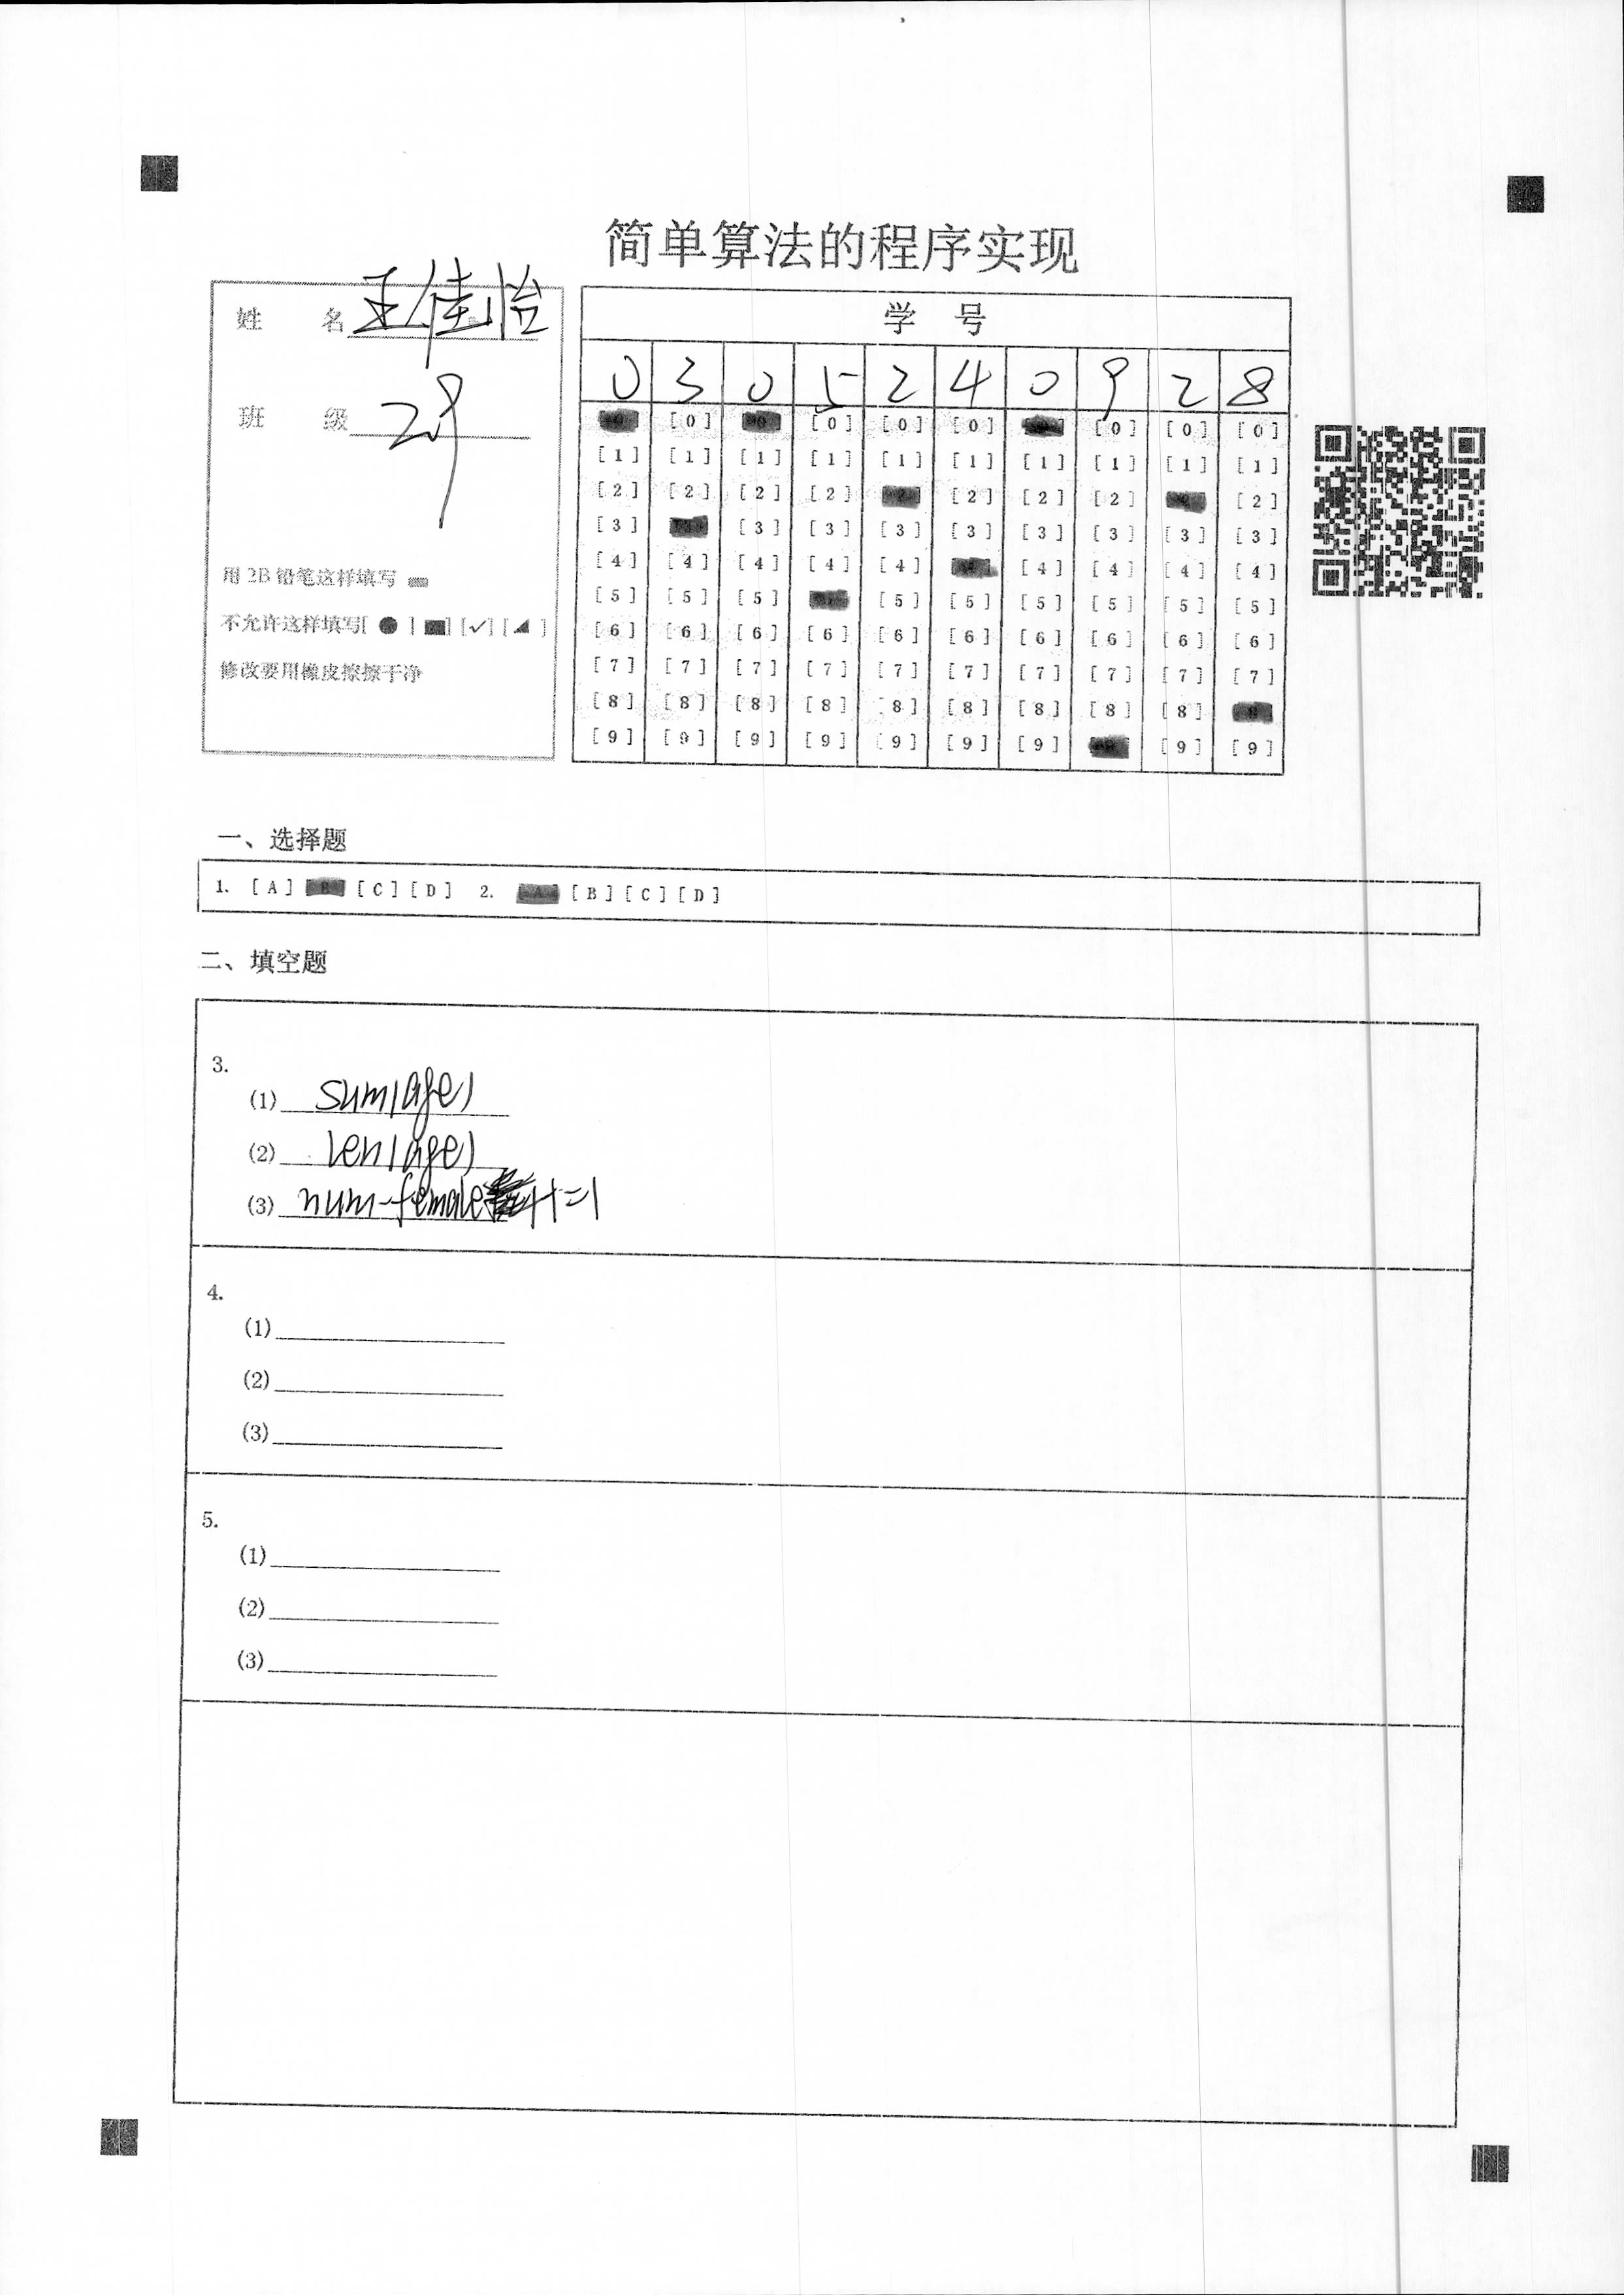 简单算法的程序实现
姓 名 王佳怡
班 级 29
用 2B 铅笔这样填写
不允许这样填写[ ● ] ■] [✓] [◢ ]
修改要用橡皮擦擦干净
学 号
0 3 0 5 2 4 0 9 2 8
[0] [0] [0] [0] [0] [0] [0]
[1] [1] [1] [1] [1] [1] [1] [1] [1] [1]
[2] [2] [2] [2] [2] [2] [2] [2]
[3] [3] [3] [3] [3] [3] [3] [3] [3]
[4] [4] [4] [4] [4] [4] [4] [4] [4]
[5] [5] [5] [5] [5] [5] [5] [5] [5]
[6] [6] [6] [6] [6] [6] [6] [6] [6] [6]
[7] [7] [7] [7] [7] [7] [7] [7] [7] [7]
[8] [8] [8] [8] [8] [8] [8] [8] [8]
[9] [9] [9] [9] [9] [9] [9] [9] [9]
一、选择题
1. [A] [B] [C] [D] 2. [A] [B] [C] [D]
二、填空题
3.
(1) sum(age)
(2) len(age)
(3) num-female+=1
4.
(1)
(2)
(3)
5.
(1)
(2)
(3)